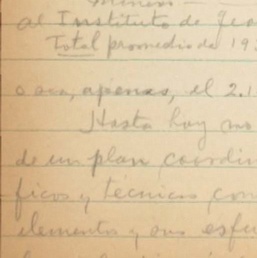 al Instituto de Geo
Total promedio de 19
o sea, apenas, el 2.1
Hasta hoy no
de un plan coordin
ficos y técnicos con
elementos y sus esfu